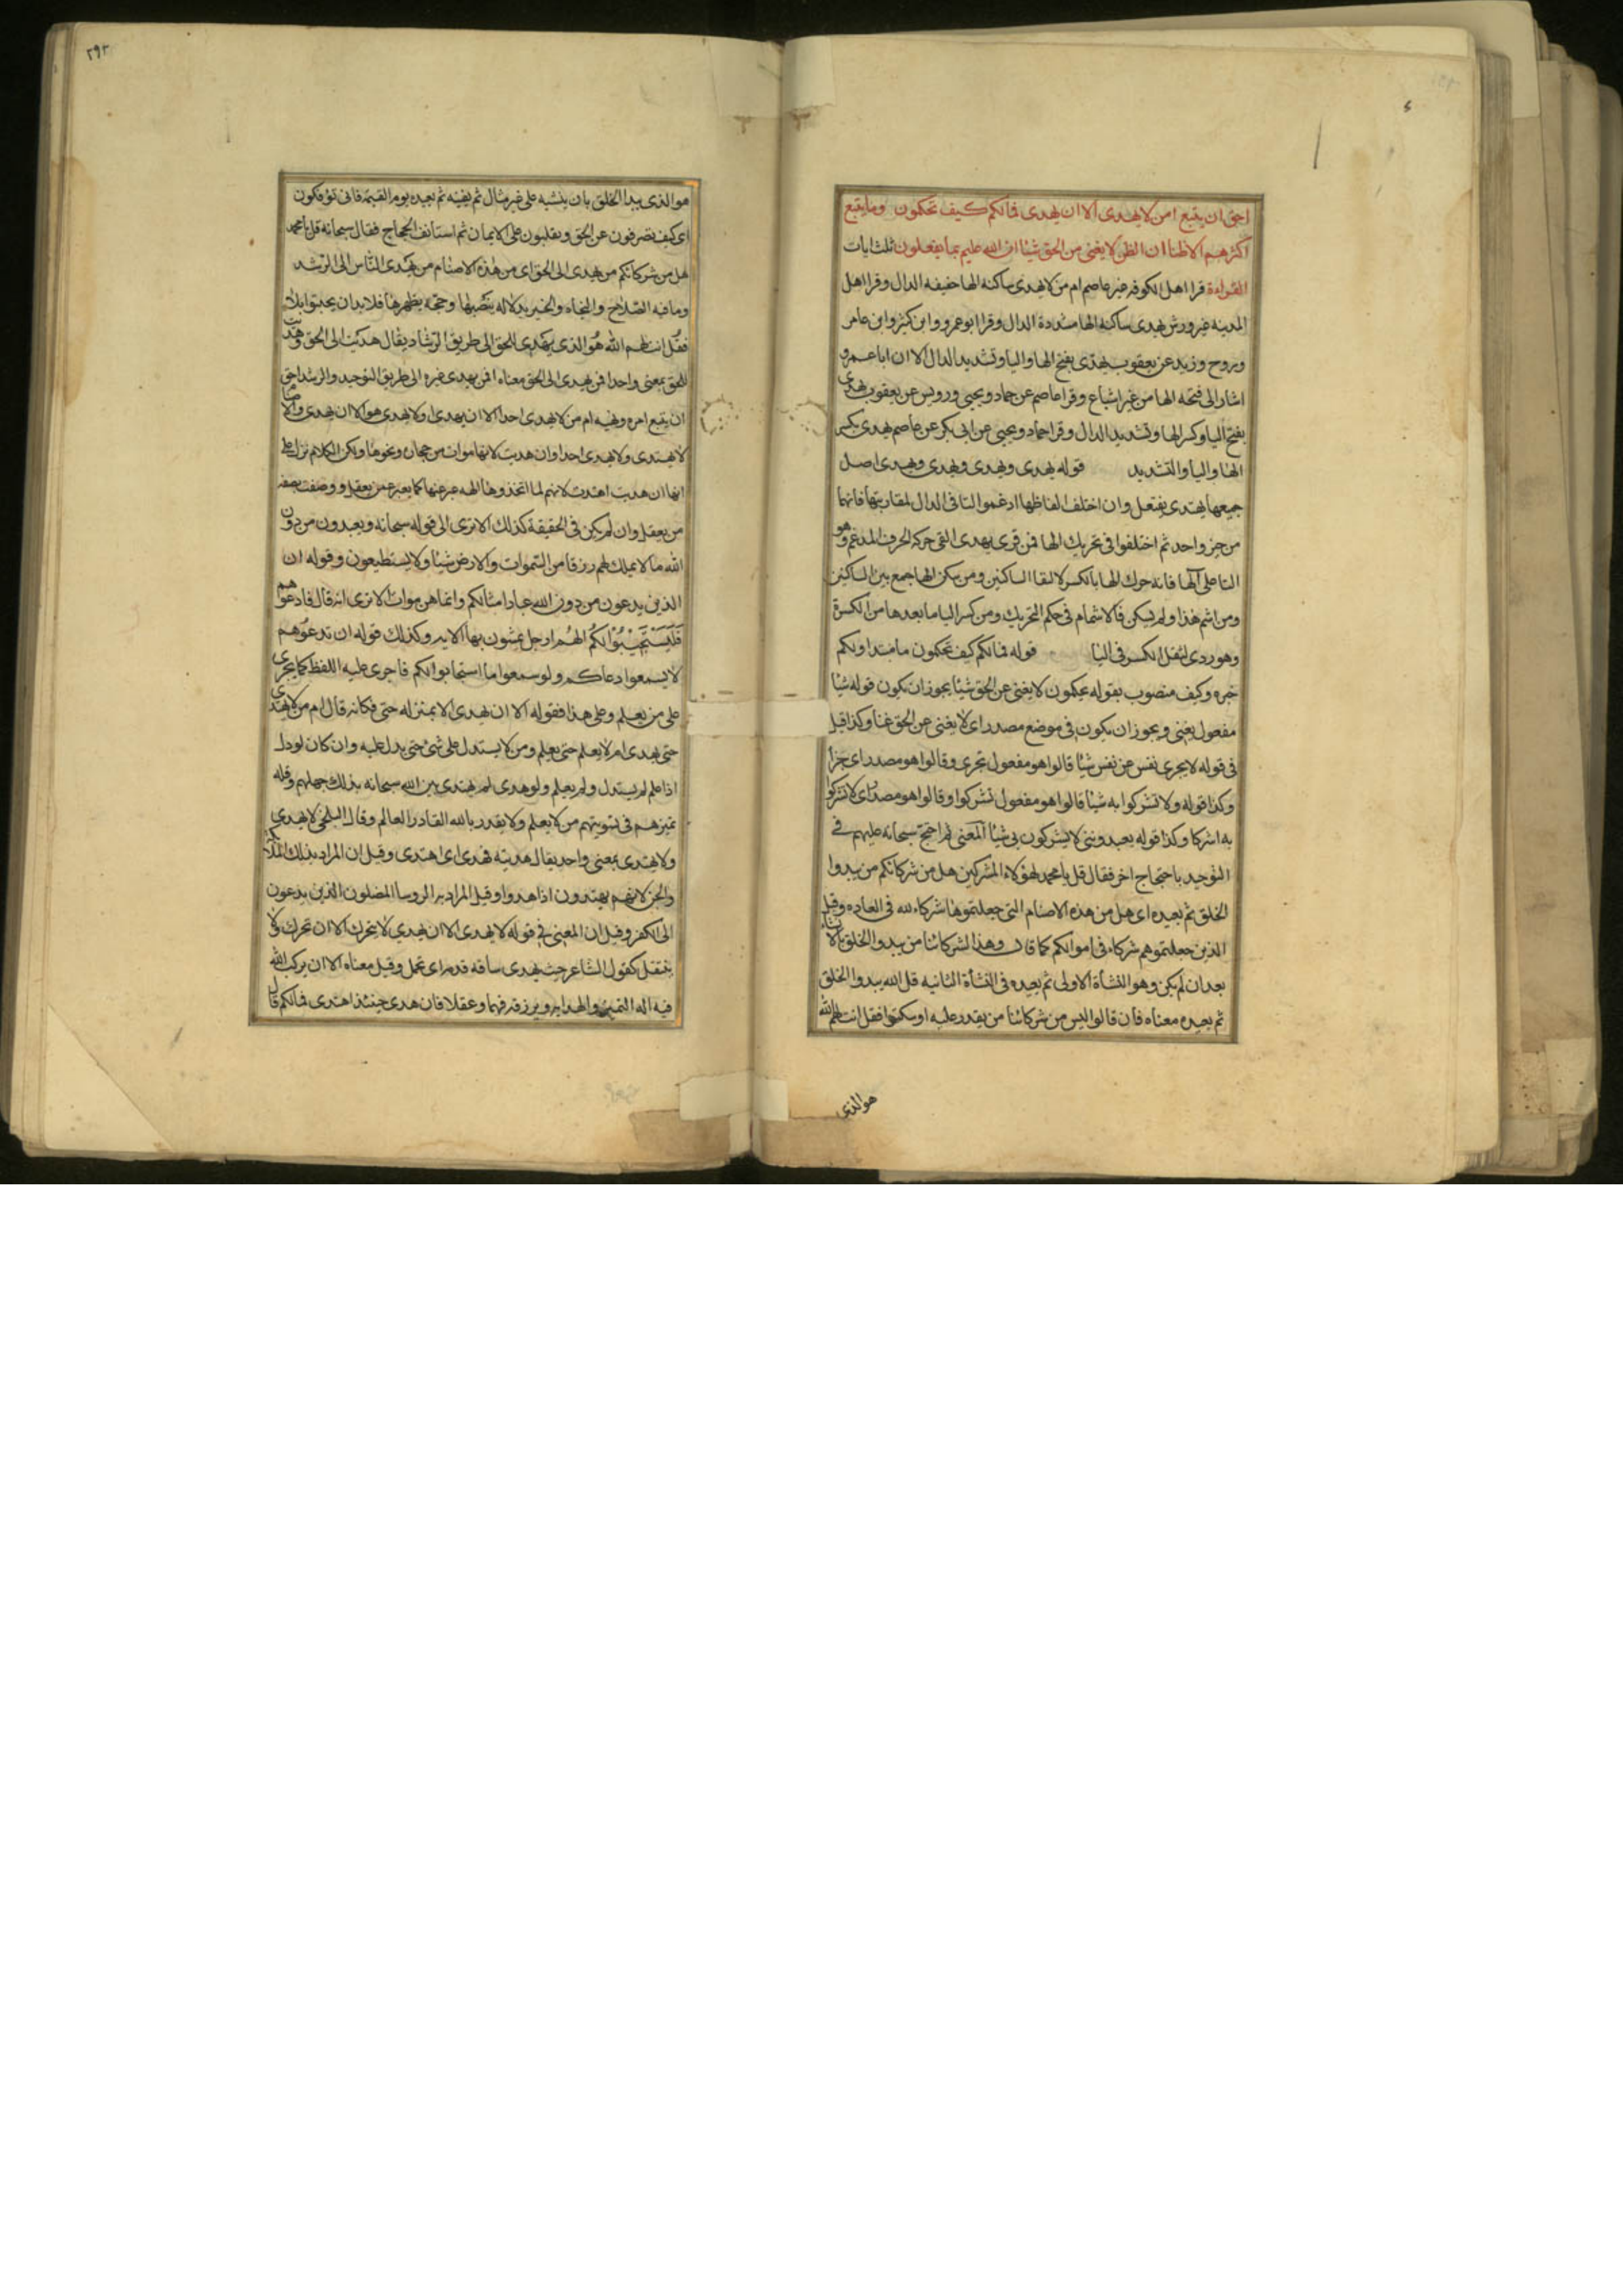 احق ان يتبع امن لا يهدى الا ان يهدى فمالكم كيف تحكمون وما يتبع
اكثرهم الا ظنا ان الظن لا يغنى من الحق شيئا ان الله عليم بما يفعلون ثلث ايات
القراءة قرا اهل الكوفه غير عاصم ام من لا يهدى ساكنه الها خفيفه الدال وقرا اهل
المدينه غير ورش يهدى ساكنه الها مشددة الدال وقرا ابو عمرو وابن كثير وابن عامر
وروح وزيد عن يعقوب يهدى بفتح الها واليا وتشديد الدال الا ان ابا عمرو
اشار الى فتحه الها من غير اشباع وقرا عاصم عن حماد ويحيى ورويس عن يعقوب يهدى
بفتح اليا وكسر الها وتشديد الدال وقرا حماد ويحيى عن ابى بكر عن عاصم يهدى بكسر
الها واليا والتشديد قوله يهدى ويهدى ويهدى ويهدى اصل
جميعها يهتدى يفتعل وان اختلف الفاظها ادغموا التا فى الدال لمقاربتها فانهما
من حيز واحد ثم اختلفوا فى تحريك الها فمن قرى يهدى القى حركه الحرف المدغم وهو
التا على الها فانه حرك الها بالكسر لالتقا الساكنين ومن سكن الها جمع بين الساكنين
ومن اشم هذا ولم يسكن فالاشمام فى حكم التحريك ومن كسر اليا ما بعدها من الكسرة
وهو ردى لثقل الكسر فى اليا قوله فمالكم كيف تحكمون ما مبتدا ولكم
خبره وكيف منصوب بقوله تحكمون لا يغنى عن الحق شيئا يجوز ان يكون قوله شيئا
مفعول يغنى ويجوز ان يكون فى موضع مصدر اى لا يغنى عن الحق غنا وكذا قيل
فى قوله لا يجزى نفس عن نفس شيئا قالوا هو مفعول تجزى وقالوا هو مصدر اى جزا
وكذا قوله ولا تشركوا به شيئا قالوا هو مفعول تشركوا وقالوا هو مصدر اى لا تشركوا
به اشركا وكذا قوله يعبدوننى لا يشركون بى شيئا المعنى ثم احتج سبحانه عليهم فى
التوحيد باحتجاج اخر فقال قل يا محمد لهؤلاء المشركين هل من شركائكم من يبدوا
الخلق ثم يعيده اى هل من هذه الاصنام التى جعلتموها شركاء لله فى العاده وقيل
الذين جعلتموهم شركاء فى اموالكم كما قال وهذا لشركائنا من يبدوا الخلق بالانشاء
بعد ان لم يكن وهو النشأة الاولى ثم يعيده فى النشأة الثانيه قل الله يبدوا الخلق
ثم يعيده معناه فان قالوا ليس من شركائنا من يقدر عليه او سكتوا فقل انت لهم الله
هو الذى
٢٩٢
هو الذى يبدا الخلق بان ينشيه على غير مثال ثم يفنيه ثم يعيده يوم القيمة فانى تؤفكون
اى كيف تصرفون عن الحق وتقلبون على الايمان ثم استانف الحجاج فقال سبحانه قل يا محمد
هل من شركائكم من يهدى الى الحق اى من هذه الاصنام من يهدى الناس الى الرشد
وما فيه الصلاح والنجاه والخير بدلاله ينصبها وحجه يظهرها فلا بد ان يجيبوا بلا
فقل انت لهم الله هو الذى يهدى للحق الى طريق الرشاد يقال هديت الى الحق وهديت
للحق بمعنى واحد افمن يهدى الى الحق معناه افمن يهدى غيره الى طريق التوحيد والرشد احق
ان يتبع امره ونهيه ام من لا يهدى احدا الا ان يهدى او لا يهدى هو الا ان يهدى والاصنام
لا يهتدى ولا يهدى احدا وان هديت لانها موات من حجاره ونحوها ولكن الكلام نزل على
انها ان هديت اهتدت لانهم لما اتخذوها الهه عبر عنها كما يعبر عمن يعقل ووصفت بصفه
من يعقل وان لم يكن فى الحقيقة كذلك الا ترى الى قوله سبحانه ويعبدون من دون
الله ما لا يملك لهم رزقا من السموات والارض شيئا ولا يستطيعون وقوله ان
الذين يدعون من دون الله عبادا امثالكم وانما هن موات الا ترى انه قال فادعوهم
فليستجيبوا لكم الهم ارجل يمشون بها الايه وكذلك قوله ان تدعوهم
لا يسمعوا دعاكم ولو سمعوا ما استجابوا لكم فاجرى عليه اللفظ كما يجرى
على من يعلم وعلى هذا فقوله الا ان يهدى الا بمنزله حتى فكانه قال ام من لا يهتدى
حتى يهدى ام لا يعلم حتى يعلم ومن لا يستدل على شئ حتى يدل عليه وان كان لو دل
اذا علم لم يستدل ولم يعلم ولو هدى لم يهتدى بين الله سبحانه بذلك جهلهم وقله
تميزهم فى تسويتهم من لا يعلم ولا يقدر بالله القادر العالم وقال البلخى لا يهدى
ولا يهتدى بمعنى واحد يقال هديته فهدى اى اهتدى وقيل ان المراد بذلك الملائكة
والجن لانهم يهتدون اذا هدوا وقيل المراد به الروسا المضلون الذين يدعون
الى الكفر وقيل ان المعنى فى قوله لا يهدى الا ان يهدى لا يتحرك الا ان تحرك ولا
ينتقل كقول الشاعر حيث يهدى ساقه قدمه اى تحمل وقيل معناه الا ان يركب الله
فيه اله التميز والهدايه ويرزقه فهما وعقلا فان هدى حينئذ اهتدى فمالكم قال